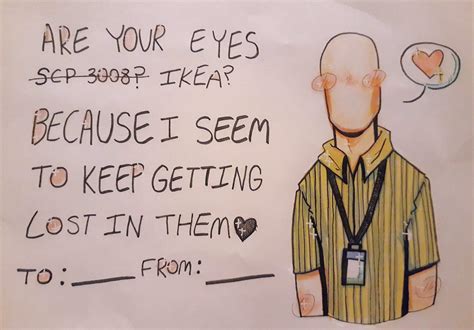 ARE YOUR EYES
~~SCP 3008?~~ IKEA?
BECAUSE I SEEM
TO KEEP GETTING
LOST IN THEM
TO:____ FROM:____